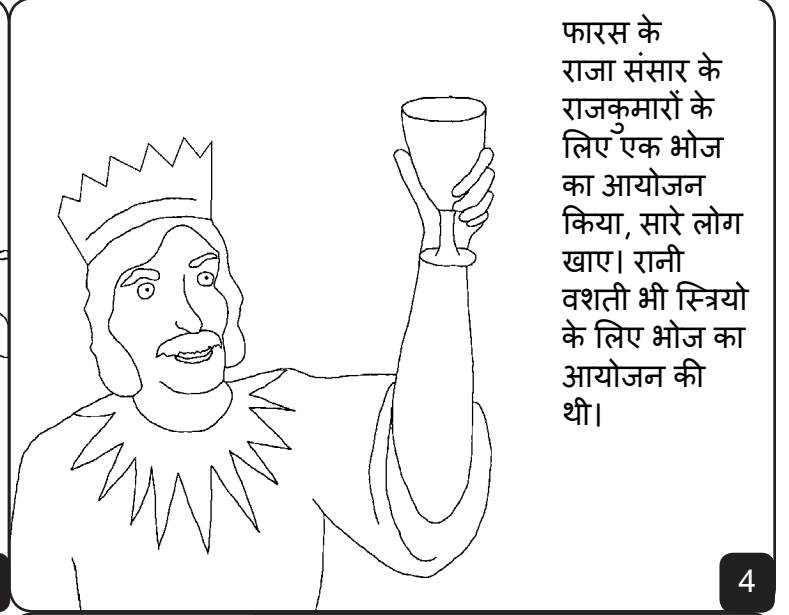 फारस के
राजा संसार के
राजकुमारों के
लिए एक भोज
का आयोजन
किया, सारे लोग
खाए। रानी
वशती भी स्त्रियो
के लिए भोज का
आयोजन की
थी।
4